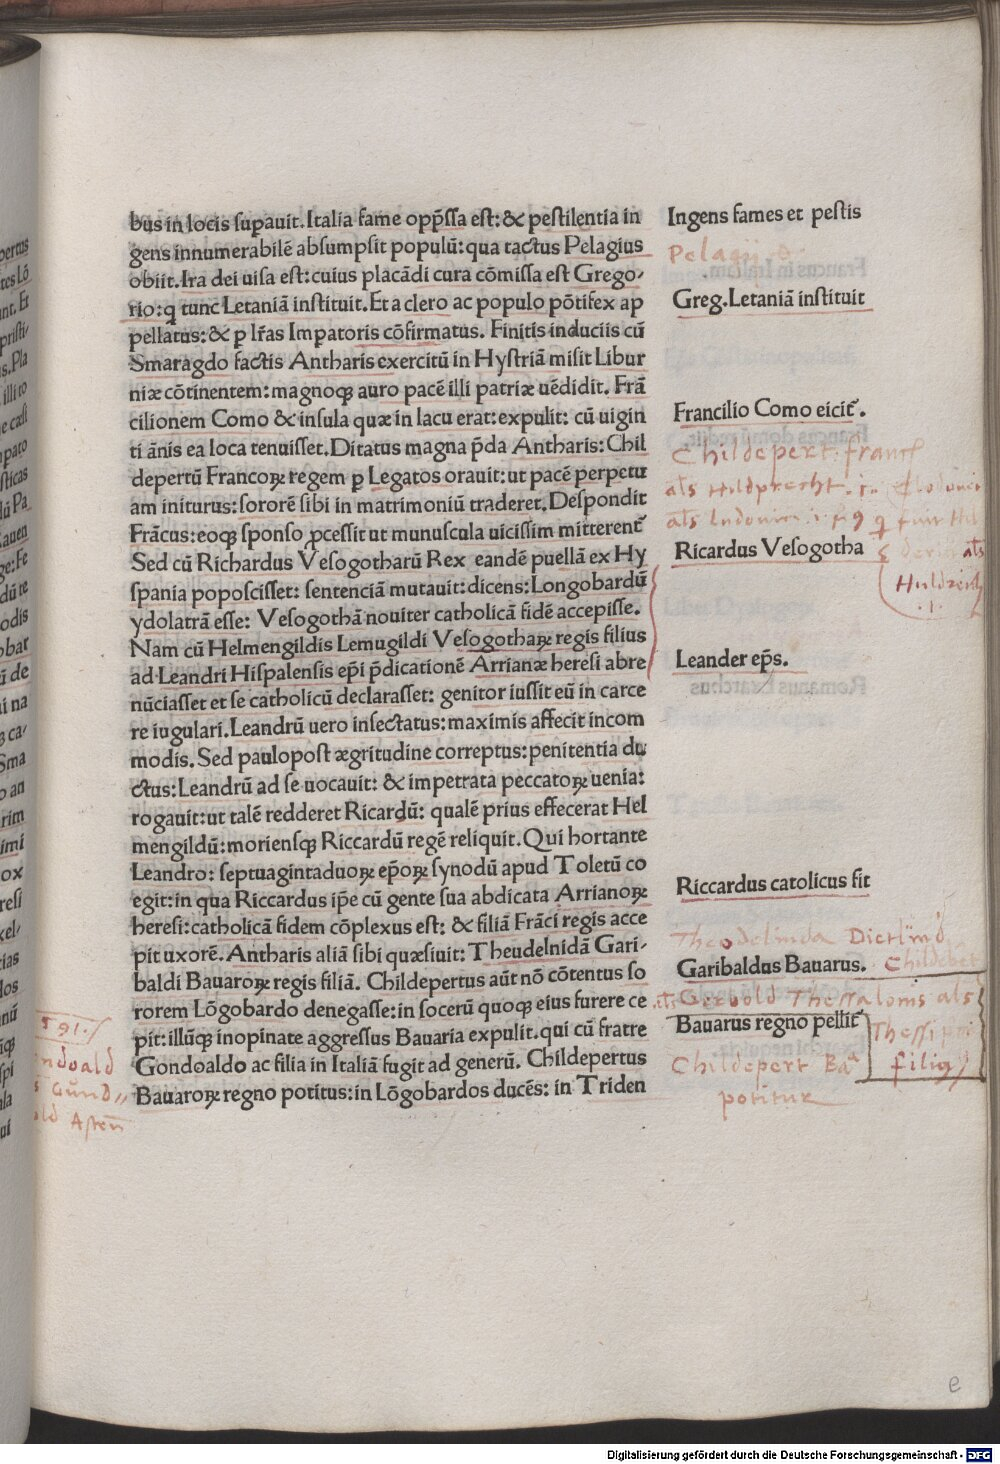 bus in locis supauit. Italia fame opp̄ssa est: & pestilentia in
gens innumerabilē absumpsit populū: qua tactus Pelagius
obiit. Ira dei uisa est: cuius placādi cura cōmissa est Grego-
rio: q tunc Letaniā instituit. Et a clero ac populo pōtifex ap
pellatus: & p lr̄as Impatoris cōfirmatus. Finitis induciis cū
Smaragdo factis Antharis exercitū in Hystriā misit Libur
niæ cōtinentem: magnoqꝫ auro pacē illi patriæ uēdidit. Frā
cilionem Como & insula quæ in lacu erat: expulit: cū uigin
ti ānis ea loca tenuisset. Ditatus magna p̄da Antharis: Chil
depertū Francoꝝ regem ꝑ Legatos orauit: ut pacē perpetu
am initurus: sororē sibi in matrimoniū traderet. Despondit
Frācus: eoqꝫ sponso ꝓcessit ut munuscula uicissim mitterent̄
Sed cū Richardus Vesogotharū Rex eandē puellā ex Hy
spania poposcisset: sentenciā mutauit: dicens: Longobardū
ydolatrā esse: Vesogothā nouiter catholicā fidē accepisse.
Nam cū Helmengildis Lemugildi Vesogothaꝝ regis filius
ad Leandri Hispalensis ep̄i p̄dicationē Arrianæ heresi abre
nūciasset et se catholicū declarasset: genitor iussit eū in carce
re iugulari. Leandrū uero insectatus: maximis affecit incom
modis. Sed paulopost ægritudine correptus: penitentia du
ctus: Leandrū ad se uocauit: & impetrata peccatoꝝ uenia:
rogauit: ut talē redderet Ricardū: qualē prius effecerat Hel
mengildū: moriensqꝫ Riccardū regē reliquit. Qui hortante
Leandro: septuagintaduoꝝ ep̄oꝝ synodū apud Toletū co
egit: in qua Riccardus ip̄e cū gente sua abdicata Arrianoꝝ
heresi: catholicā fidem cōplexus est: & filiā Frāci regis acce
pit uxorē. Antharis aliā sibi quæsiuit: Theudelnidā Gari-
baldi Bauaroꝝ regis filiā. Childepertus aūt nō cōtentus so
rorem Lōgobardo denegasse: in socerū quoqꝫ eius furere ce
pit: illūqꝫ inopinate aggressus Bauaria expulit. qui cū fratre
Gondoaldo ac filia in Italiā fugit ad generū. Childepertus
Bauaroꝝ regno potitus: in Lōgobardos ducēs: in Triden
Ingens fames et pestis
Pelagij
Greg. Letaniā instituit
Francilio Como eicit̄.
Childepert. franc
als Hildprecht. i.
als ludouic
Ricardus Vesogotha
als
Huldrich
.i.
Leander ep̄s.
Riccardus catolicus fit
Theodelinda Dietlind
Garibaldus Bauarus. Childebert
als Gerbold Thessaloms als
Bauarus regno pellit̄
Childepert Ba
filig
potitur
591.
ndoald
old
e
Digitalisierung gefördert durch die Deutsche Forschungsgemeinschaft - DFG